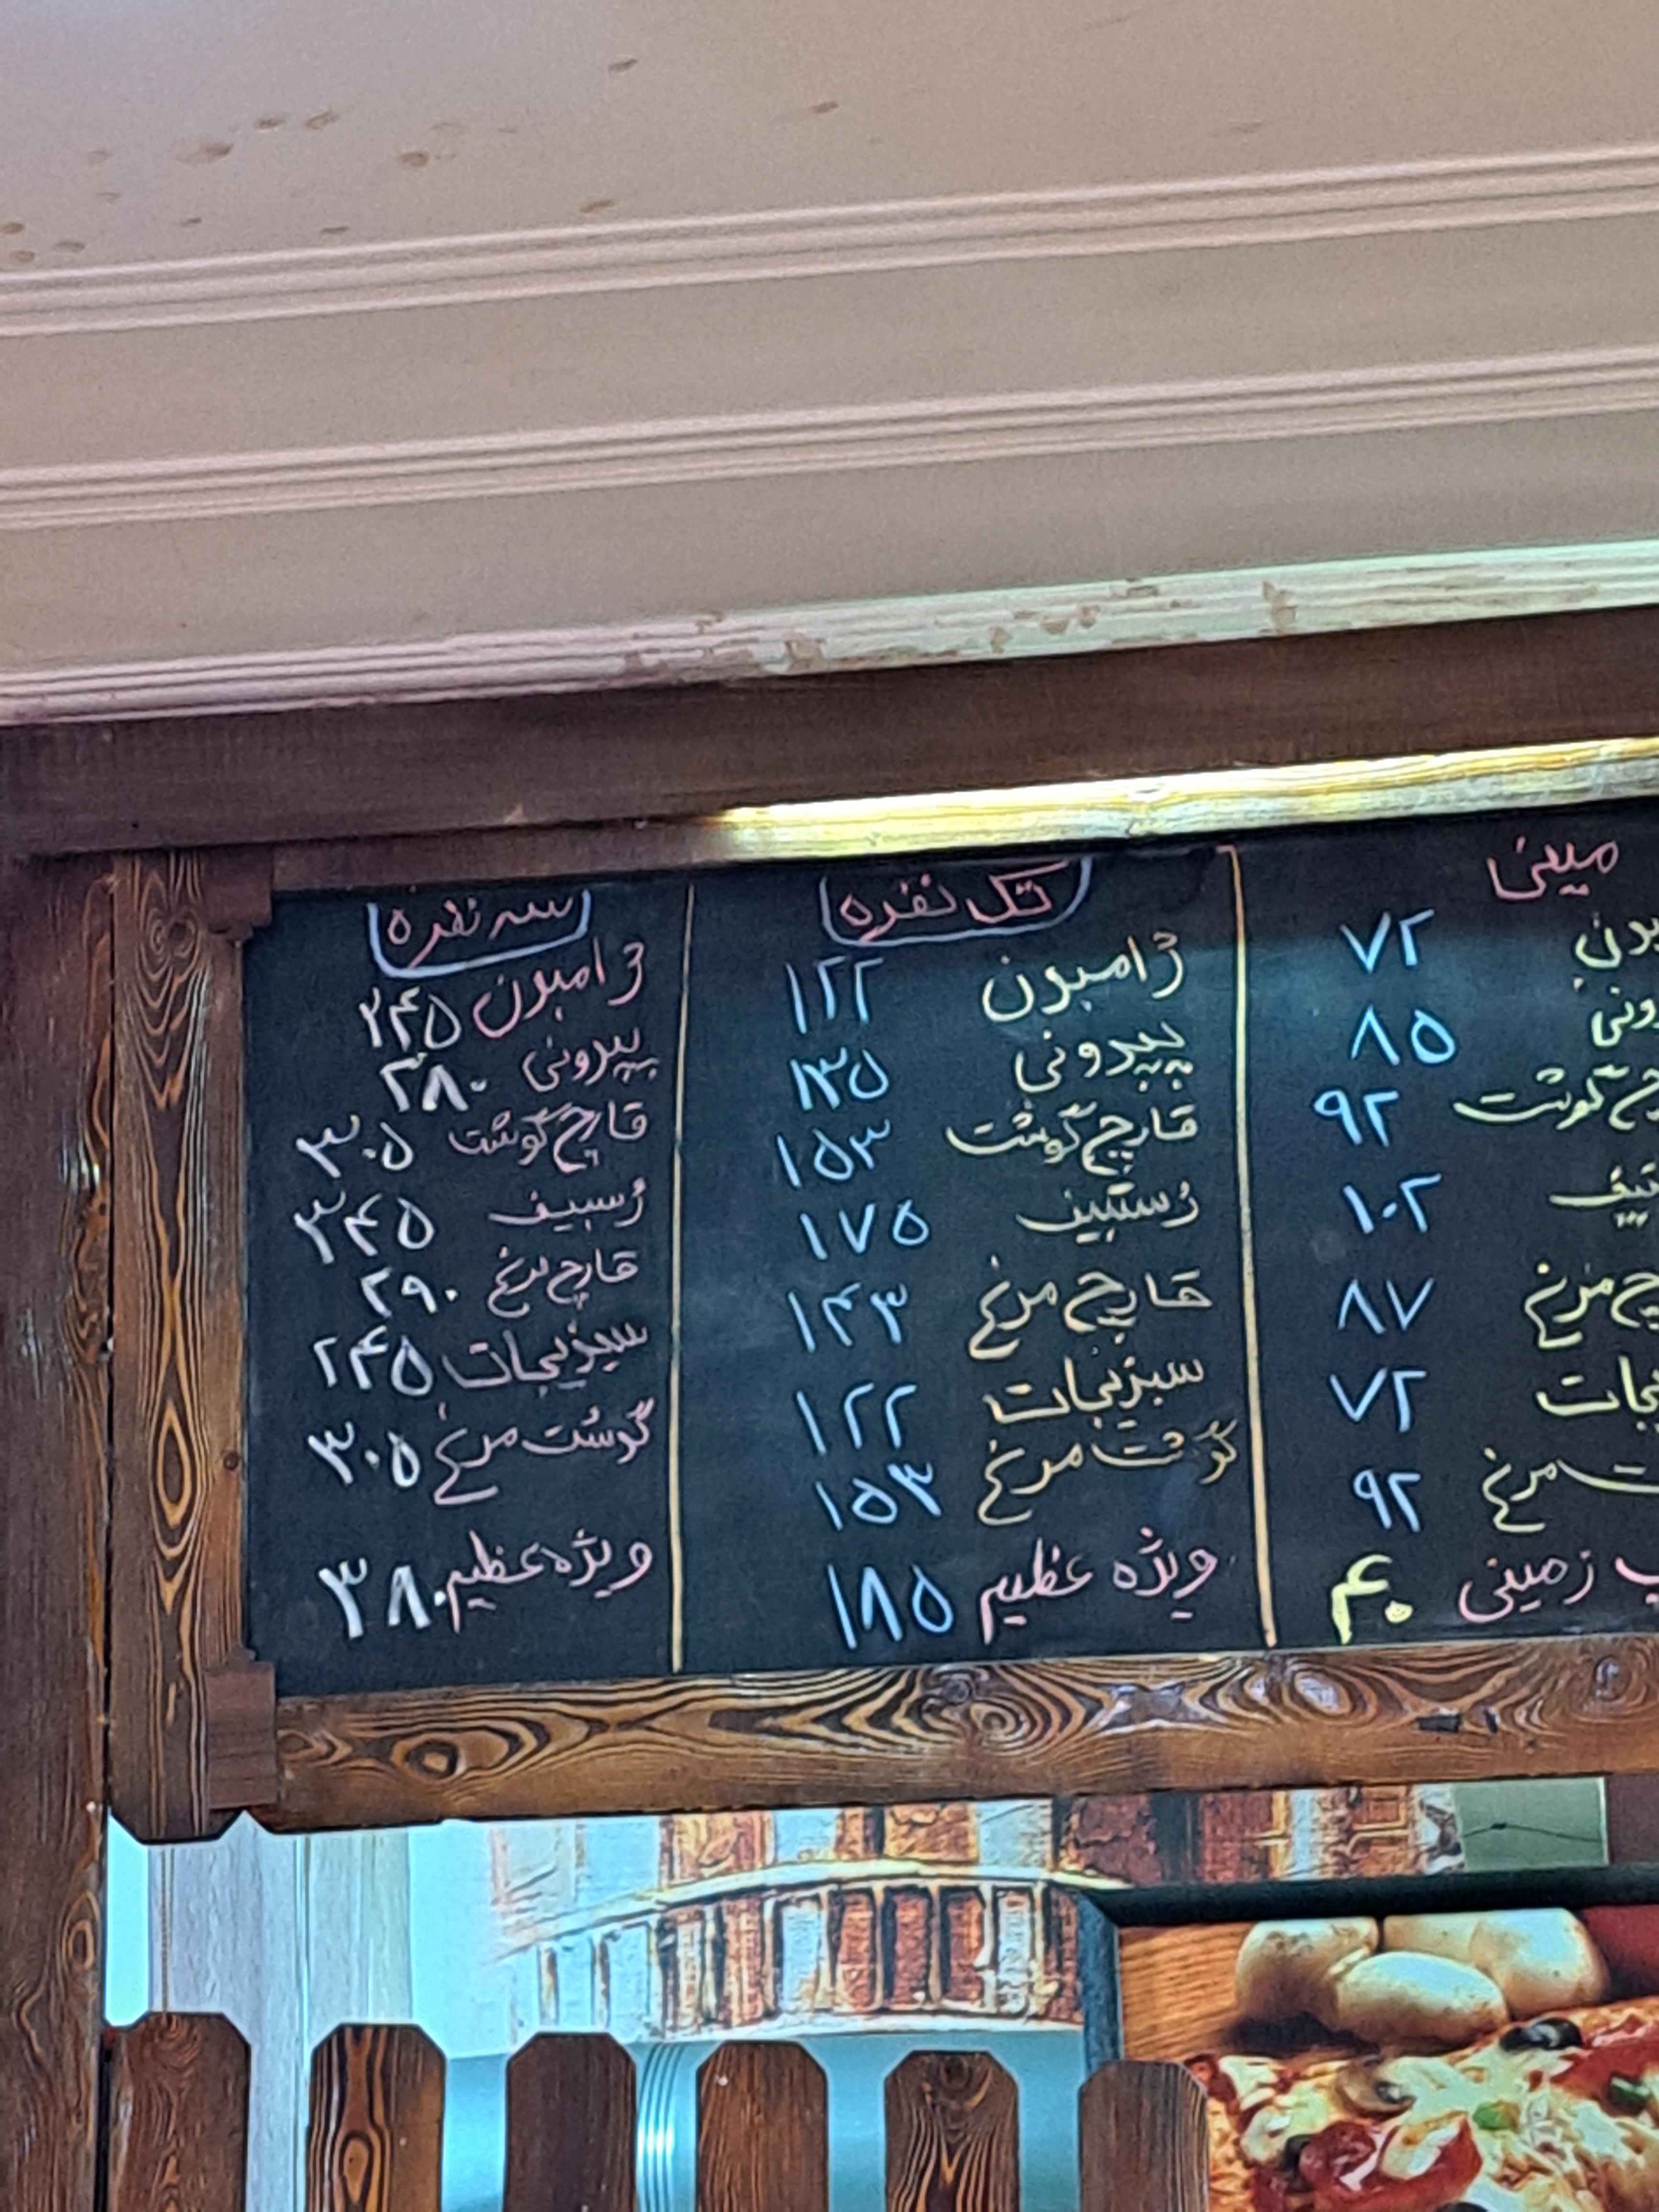 مینی
۷۲
۸۵
گوشت ۹۲
۱۰۲
مرغ ۸۷
۷۲
مرغ ۹۲
زمینی ۴۰
تک نفره
ژامبون ۱۲۲
پپرونی ۱۳۵
قارچ گوشت ۱۵۳
رُستبیف ۱۷۵
قارچ مرغ ۱۴۳
سبزیجات ۱۲۲
گوشت مرغ ۱۵۳
ویژه عظیم ۱۸۵
سه نفره
ژامبون ۲۴۵
پپرونی ۲۸۰
قارچ گوشت ۳۰۵
رُسبیف ۳۴۵
قارچ مرغ ۲۹۰
سبزیجات ۲۴۵
گوشت مرغ ۳۰۵
ویژه عظیم ۳۸۰